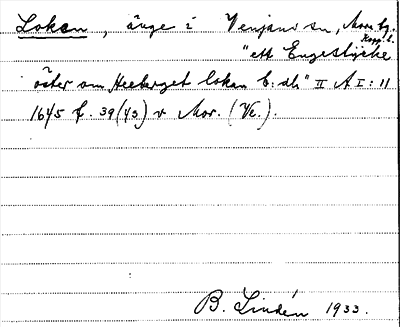 Lokan, änge i Venjans sn, Mora tg.
Kopp. l.
"ett Engestycke
öster om Heeberget lokan C: dh" II A I: 11
1645 f. 39 (43) v Mor. (Ve.).
B. Lindén 1933.